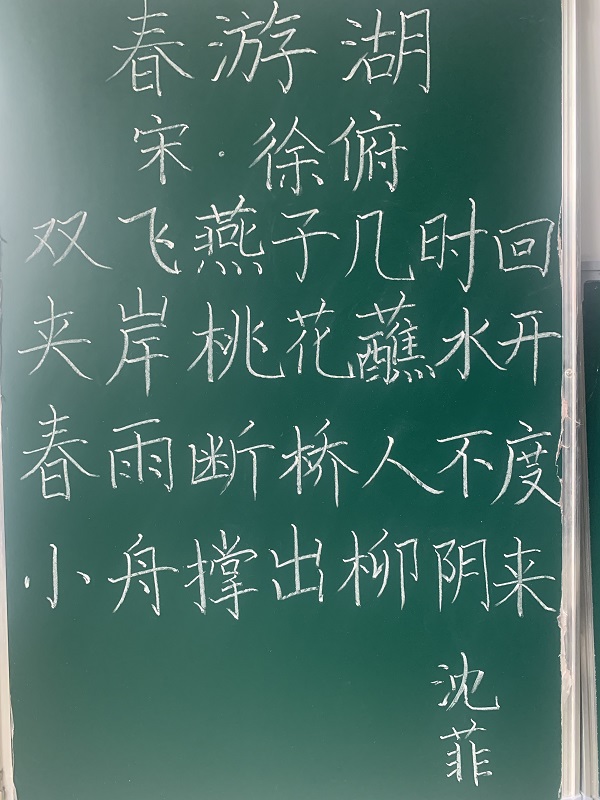 春游湖
宋·徐俯
双飞燕子几时回
夹岸桃花蘸水开
春雨断桥人不度
小舟撑出柳阴来
沈菲